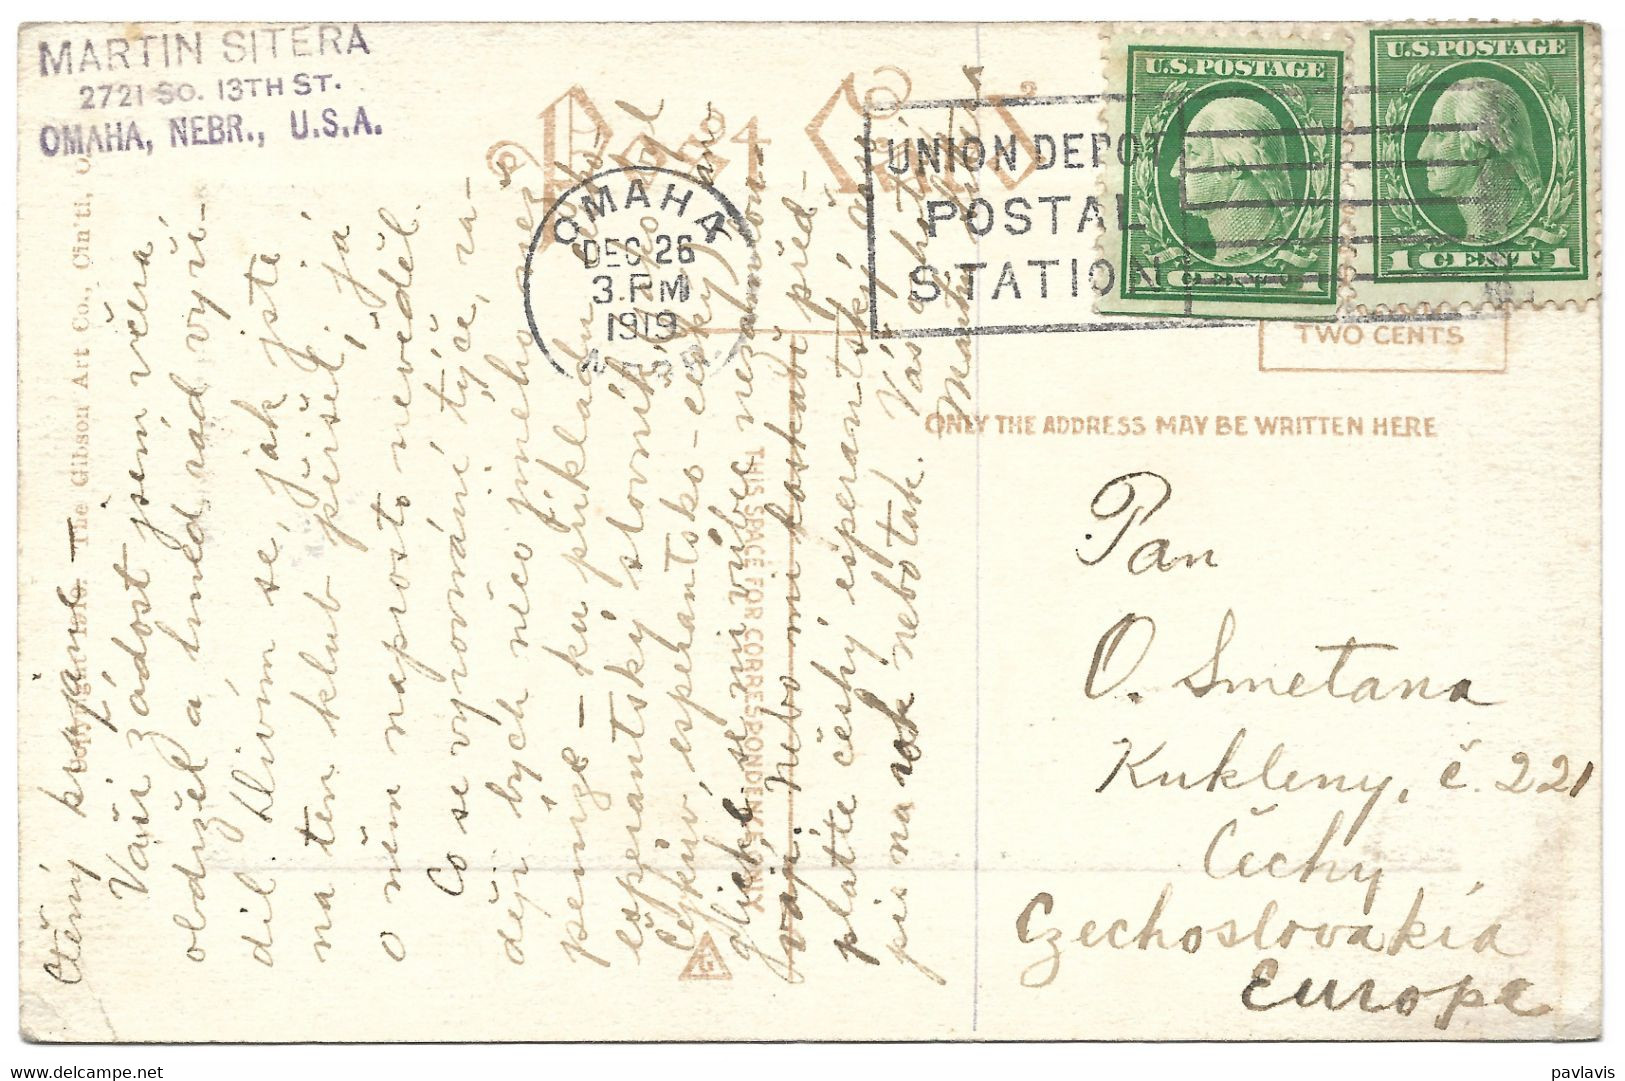 MARTIN SITERA
2721 SO. 13TH ST.
OMAHA, NEBR., U.S.A.
Post Card
OMAHA
DEC 26
3. PM
1919
NEBR.
UNION DEPOT
POSTAL
STATION
U.S. POSTAGE
1 CENT 1
U.S. POSTAGE
1 CENT 1
TWO CENTS
ONLY THE ADDRESS MAY BE WRITTEN HERE
THIS SPACE FOR CORRESPONDENCE ONLY
The Gibson Art Co., Cin'ti, O.
G
Čtěný krajane —
Vaši žádost jsem včera
obdržel a hned rád vyří-
dil. Divím se, jak jste
na ten klub přišel, já
o něm naprosto nevěděl.
Co se vyrovnání týče, ra-
ději bych něco jiného než
peníze — ku příkladu
esperantský slovník
esperantsko-český
se mi vůbec
Nebo mi laskavě před-
platte český esperantský
na rok nebo tak. Váš oha
Pan
O. Smetana
Kukleny, č. 221
Čechy
Czechoslovakia
Europe
pavlavis
delcampe.net
pavlavis